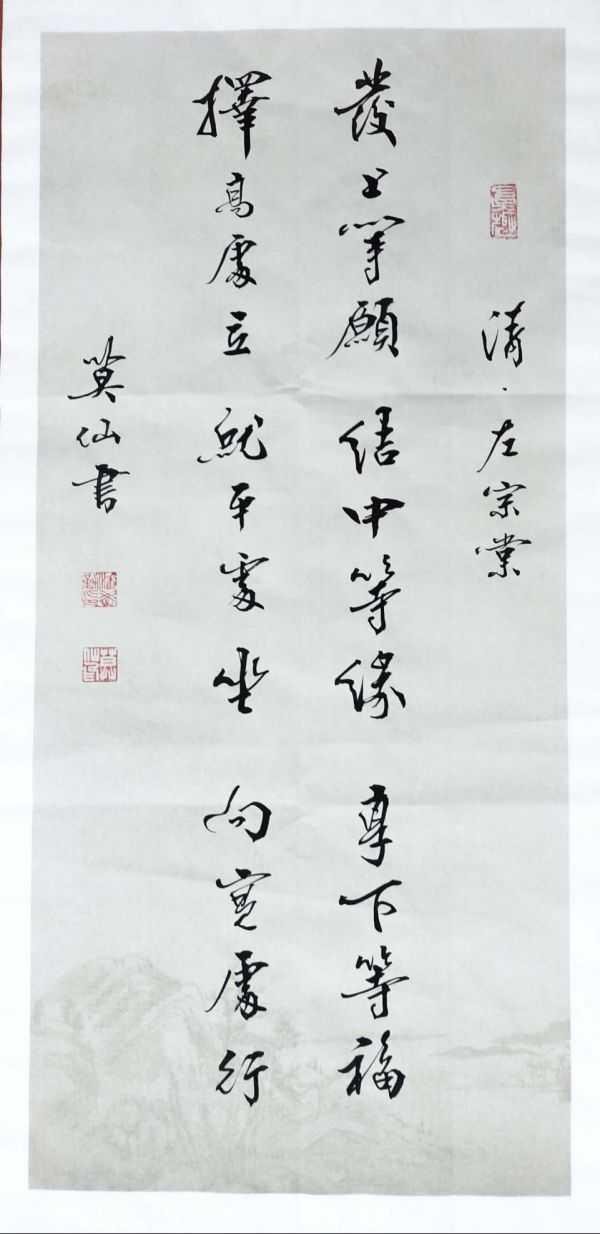 清·左宗棠
發上等願 結中等緣 享下等福
擇高處立 就平處坐 向寬處行
英仙書